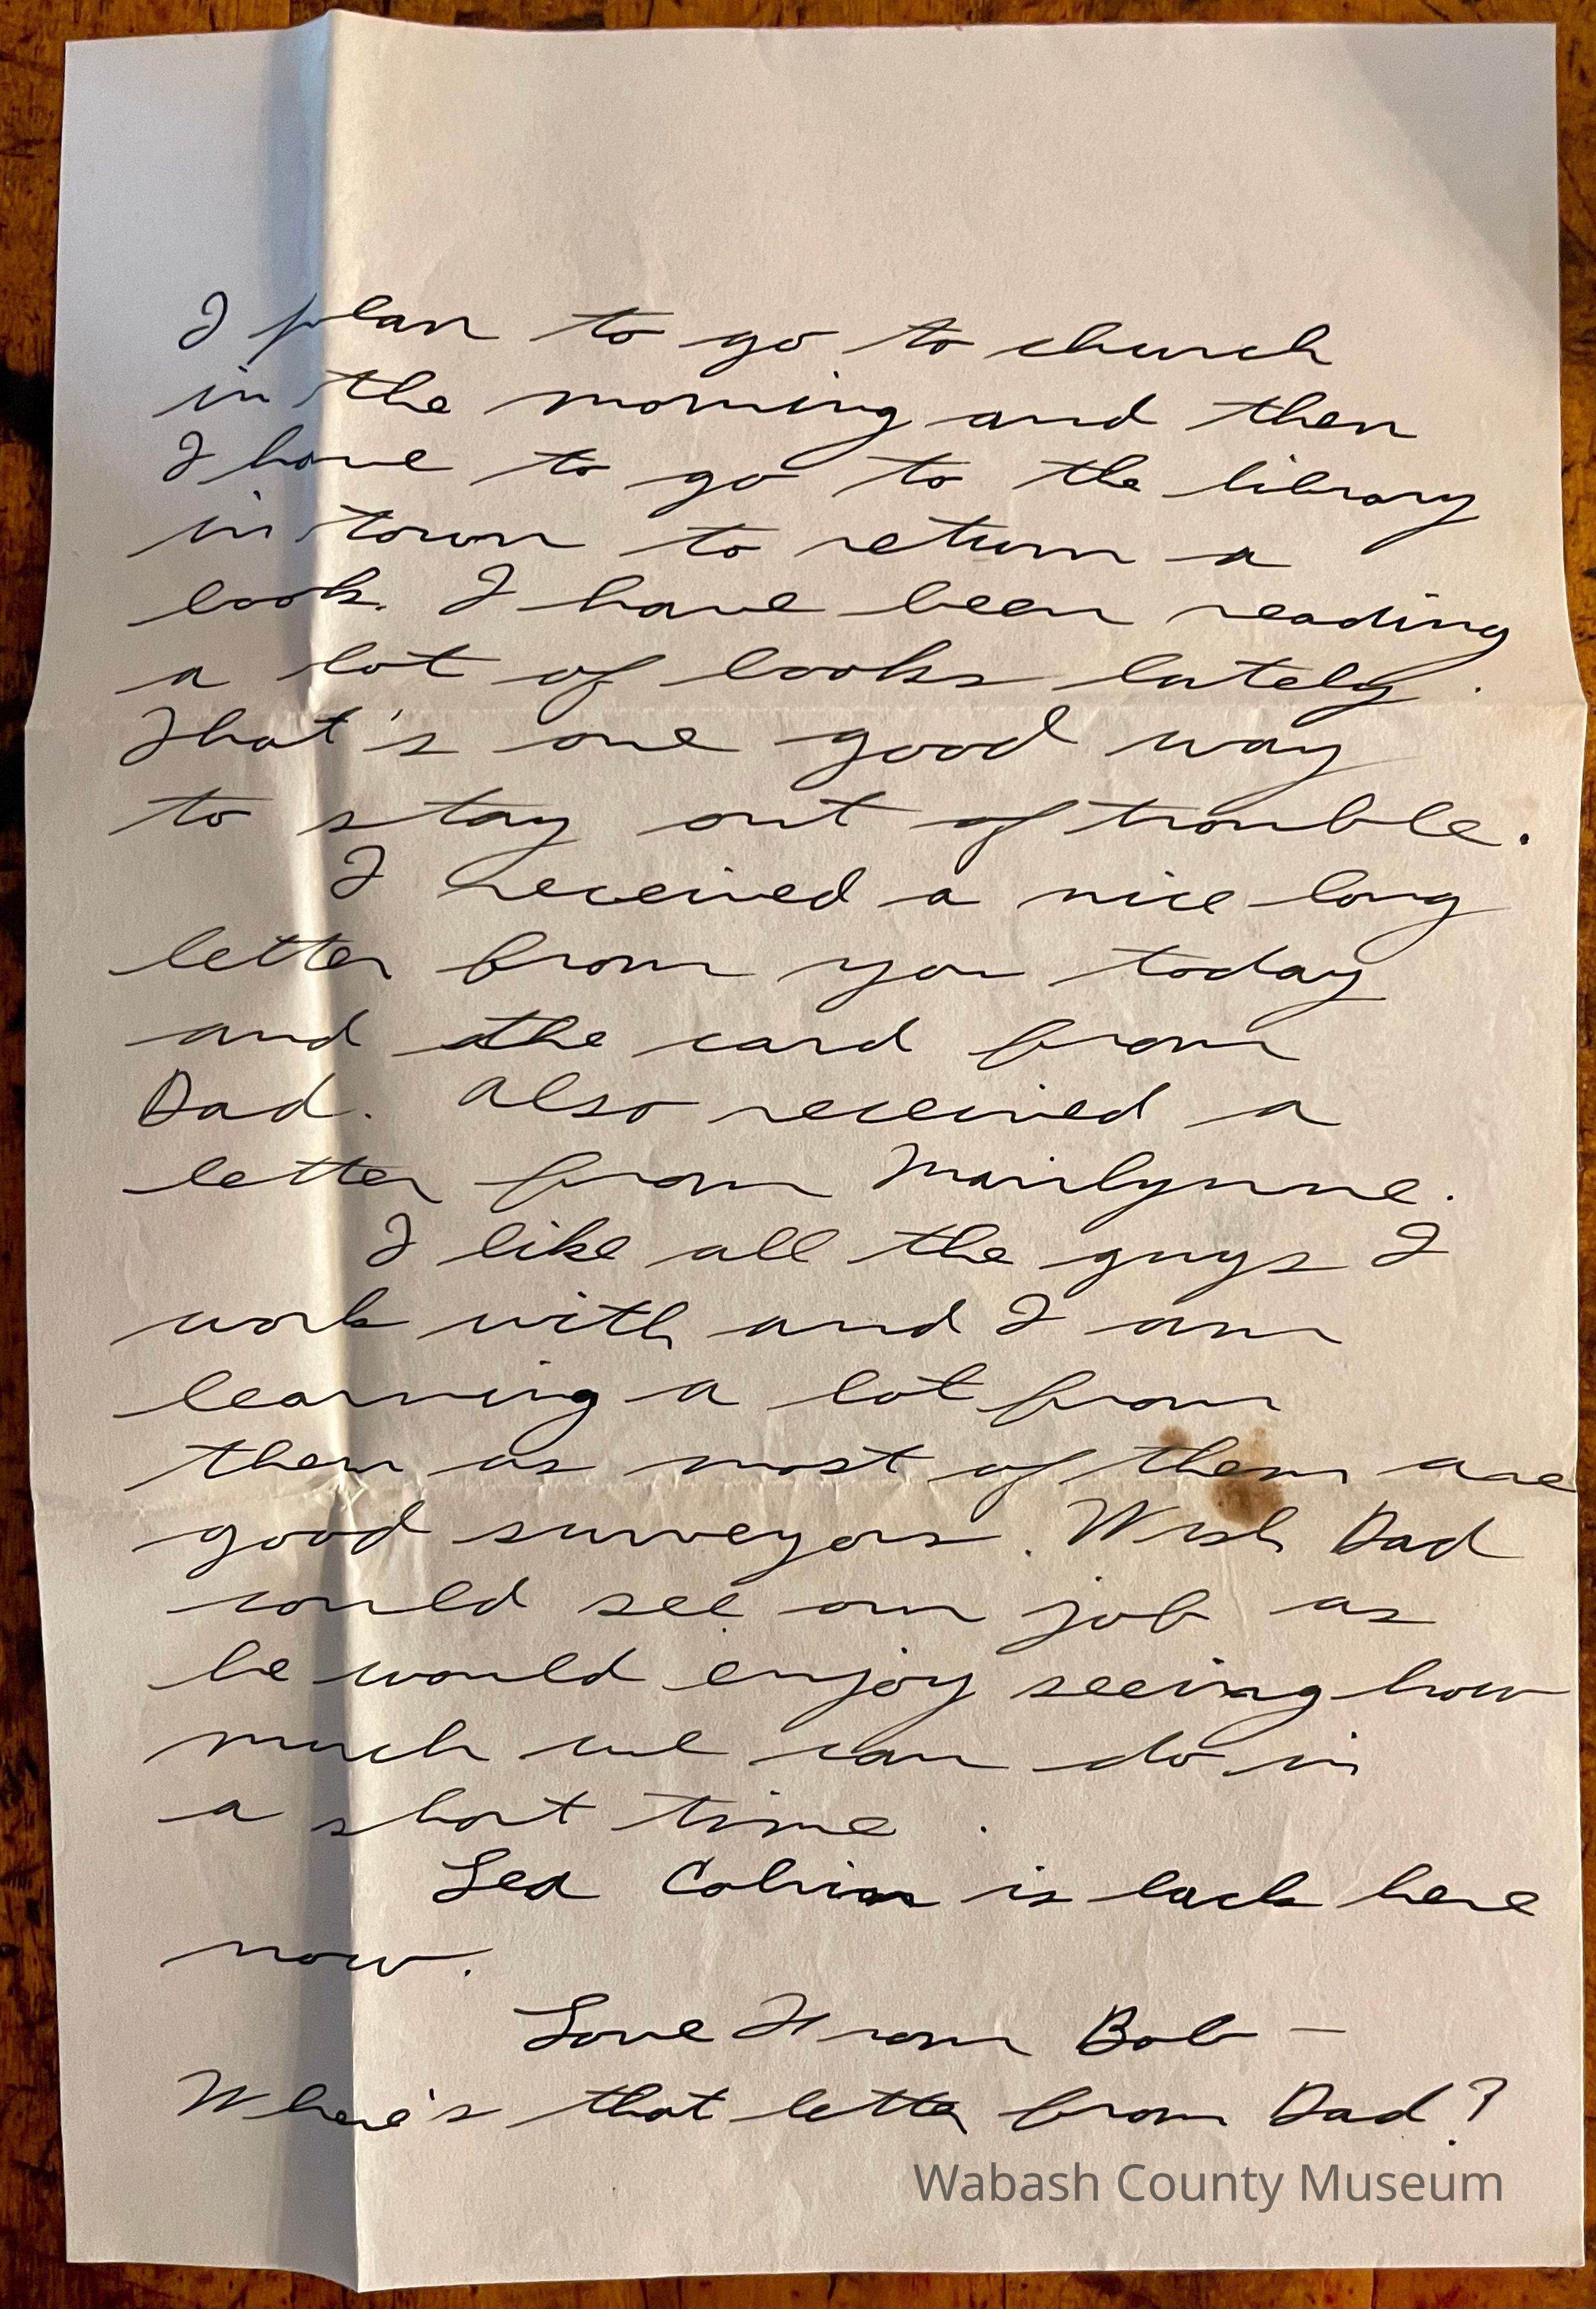 I plan to go to church
in the morning and then
I have to go to the library
in town to return a
book. I have been reading
a lot of books lately.
That's one good way
to stay out of trouble.
I received a nice long
letter from you today
and the card from
Dad. Also received a
letter from Marilynne.
I like all the guys I
work with and I am
learning a lot from
them as most of them are
good surveyors. Wish Dad
could see our job as
he would enjoy seeing how
much we can do in
a short time.
is back here
now.
Love From Bob —
Where's that letter from Dad?
Wabash County Museum